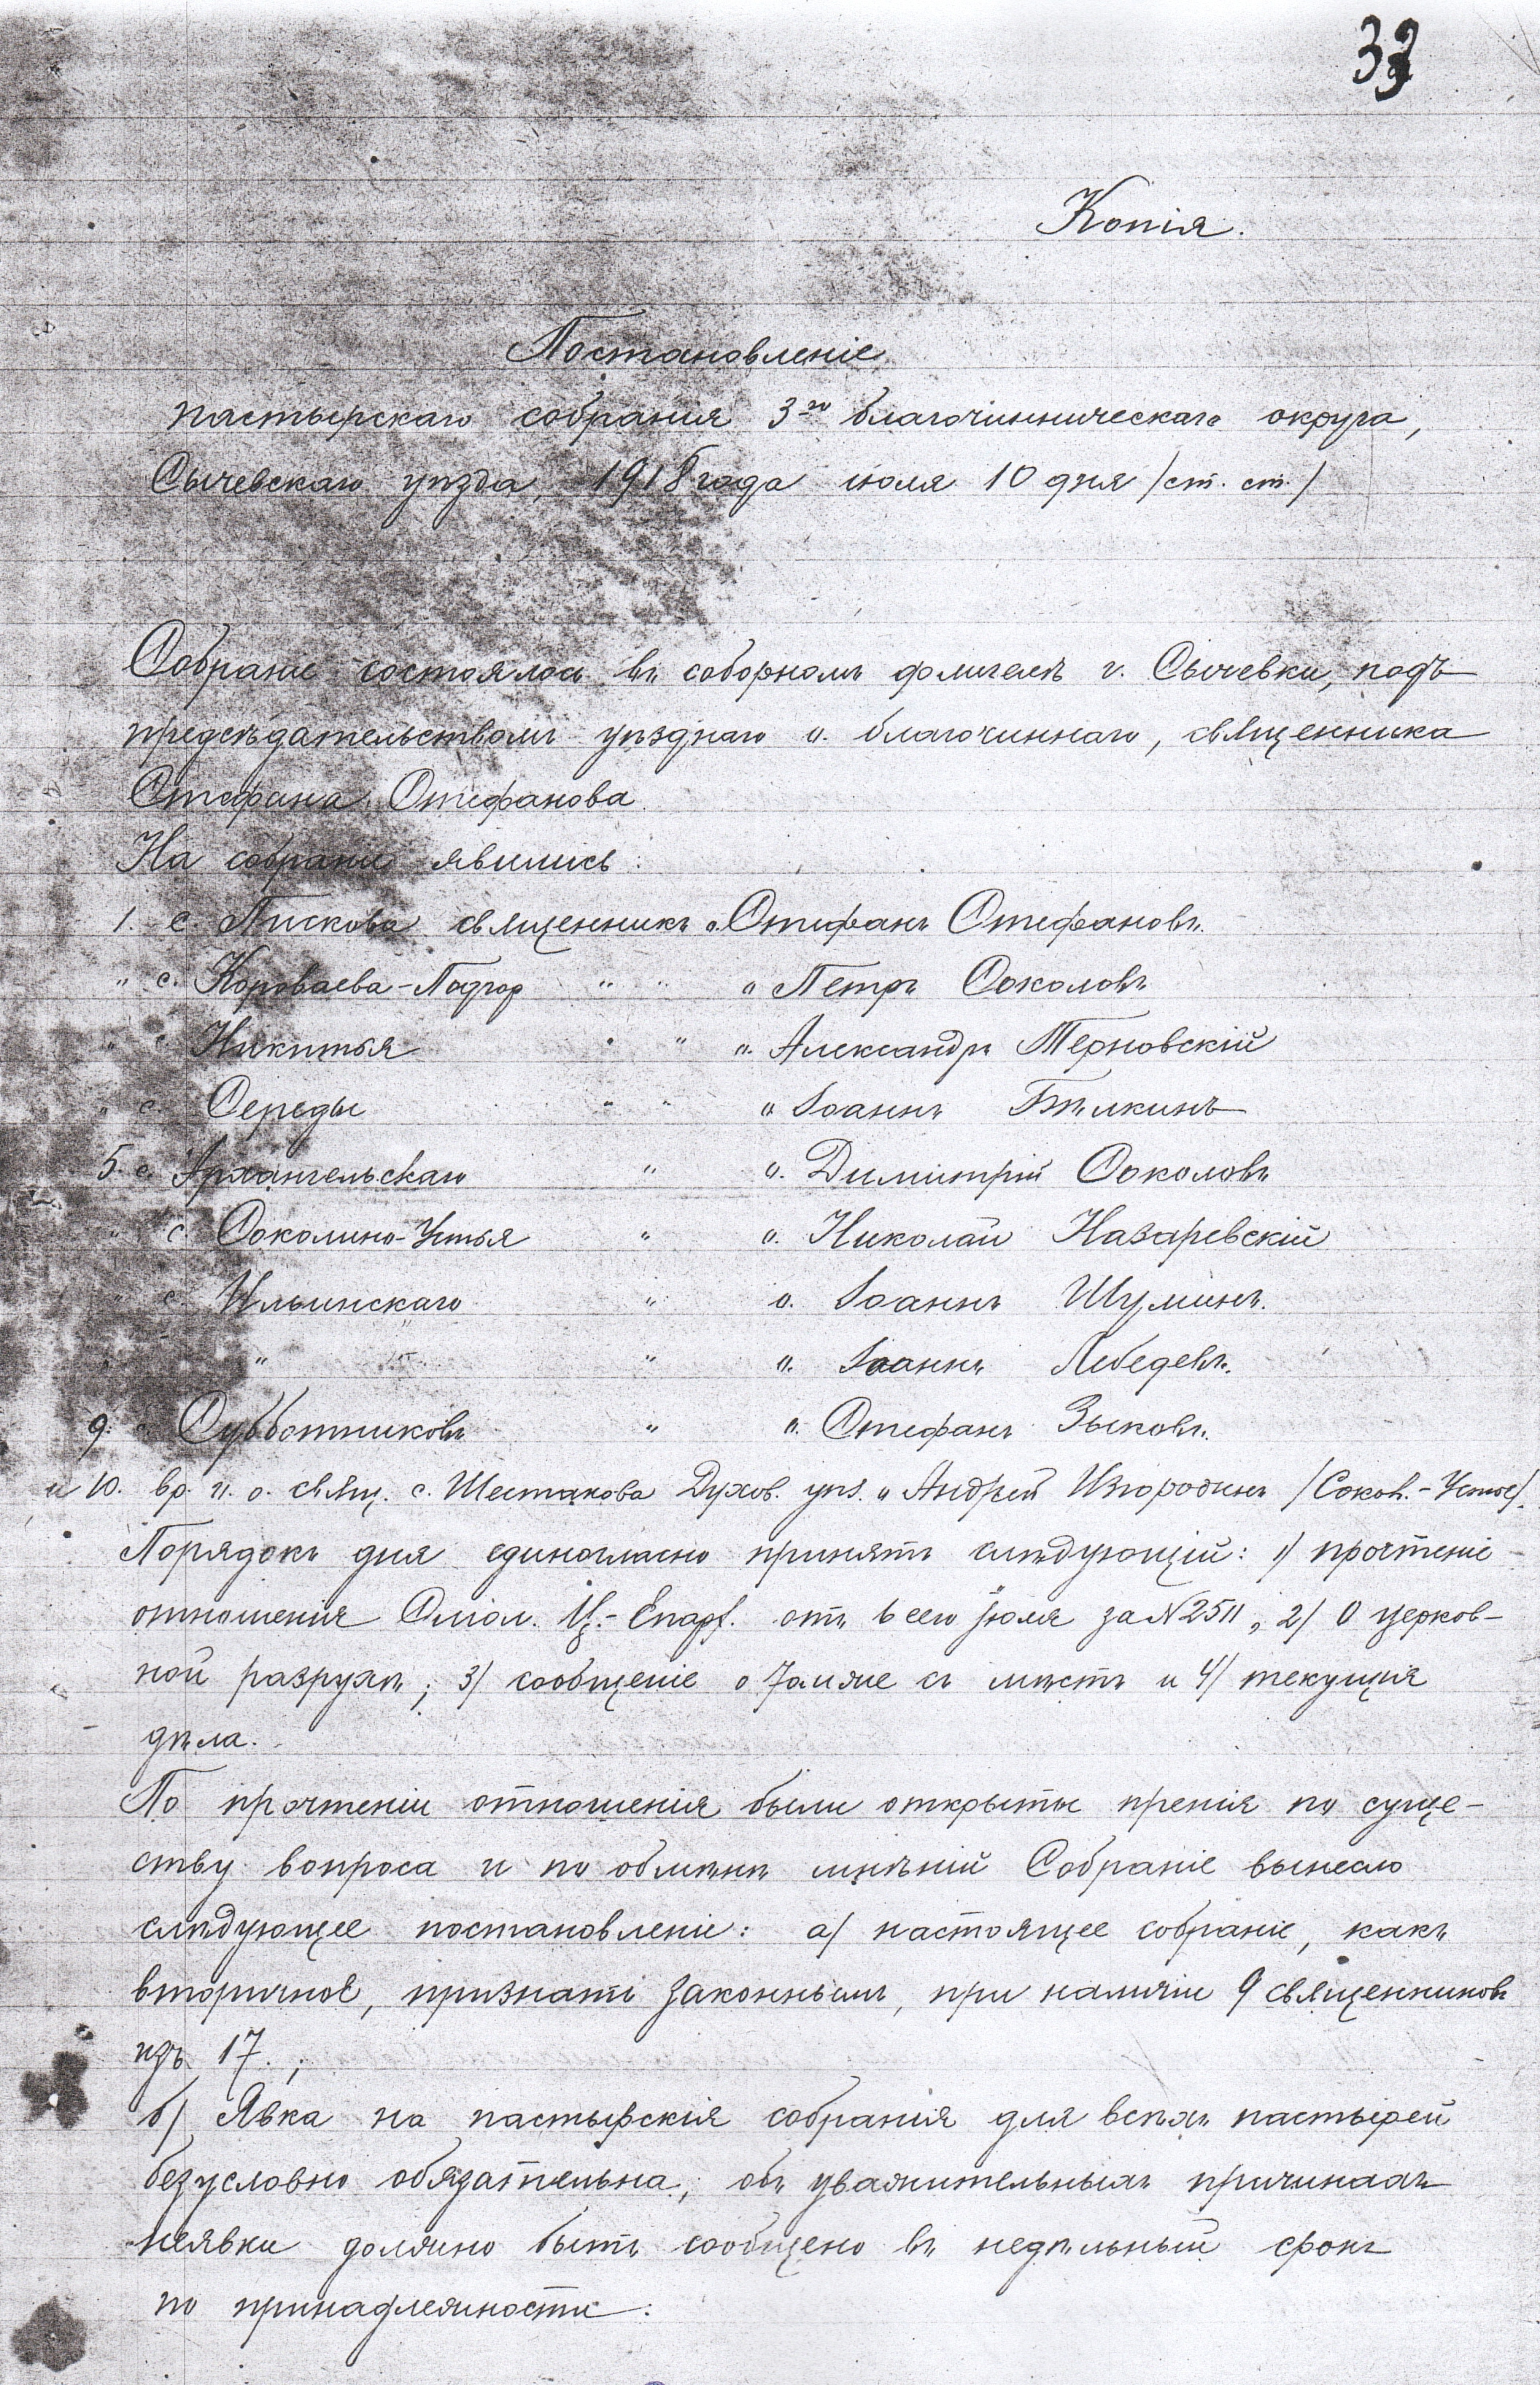 33
Копія.
Постановленіе
пастырскаго собранія 3-го благочинническаго округа,
Сычевскаго уѣзда, 1918 года іюля 10 дня /ст. ст./
Собраніе состоялось въ соборномъ флигелѣ г. Сычевки, подъ
предсѣдательствомъ уѣзднаго о. благочиннаго, священника
Стефана Стефанова.
На собраніе явились:
1. с. Пискова священникъ о. Стефанъ Стефановъ.
" с. Короваева-Подгор " " " Петръ Соколовъ
" с. Никитья " " о. Александръ Терновскій
" с. Середы " " о. Іоаннъ Бѣлкинъ
5. с. Архангельскаго " о. Димитрій Соколовъ
" с. Соколино-Устья " о. Николай Назаревскій
" с. Ильинскаго " о. Іоаннъ Шуминъ.
" " " о. Іоаннъ Лебедевъ.
9. с. Субботниковъ " о. Стефанъ Зыковъ.
и 10. вр. и. о. свящ. с. Шестакова Духов. уѣз. о. Андрей Изгородинъ /Сокол.-Устье/.
Порядокъ дня единогласно принятъ слѣдующій: 1/ прочтеніе
отношенія Смол. Ц.-Епарх. отъ 6 сего іюля за № 2511, 2/ О церков-
ной разрухѣ; 3/ сообщеніе о томже съ мѣстъ и 4/ текущія
дѣла.
По прочтеніи отношенія были открыты пренія по суще-
ству вопроса и по обмѣнѣ мнѣній Собраніе вынесло
слѣдующее постановленіе: а/ настоящее собраніе, какъ
вторичное, признать законнымъ, при наличіи 9 священниковъ
изъ 17.;
б/ Явка на пастырскія собранія для всѣхъ пастырей
безусловно обязательна; объ уважительныхъ причинахъ
неявки должно быть сообщено въ недѣльный срокъ
по принадлежности.